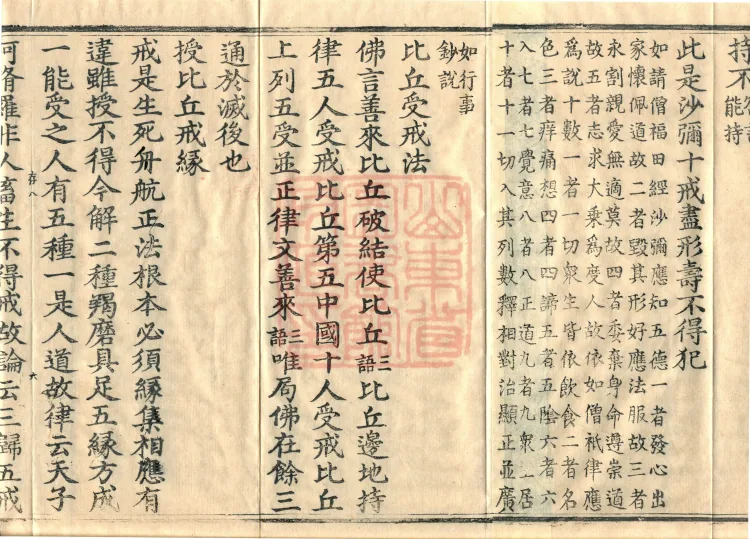 持不
能持
此是沙彌十戒盡形壽不得犯
如請僧福田經沙彌應知五德一者發心出
家懷佩道故二者毀其形好應法服故三者
永割親愛無適莫故四者委棄身命遵崇道
故五者志求大乗爲度人故依如僧祇律應
爲說十數一者一切衆生皆依飲食二者名
色三者痒痛想四者四諦五者五陰六者六
入七者七覺意八者八正道九者九衆居
十者十一切入其列數釋相對治顯正並廣
如行事
鈔說
比丘受戒法
佛言善來比丘破結使比丘三語比丘邊地持
律五人受戒比丘第五中國十人受戒比丘
上列五受並正律文善來三語唯局佛在餘三
通於滅後也
授比丘戒緣
戒是生死舟航正法根本必須緣集相應有
違雖授不得今解二種羯磨具足五緣方成
一能受之人有五種一是人道故律云天子
存八 六
阿脩羅非人畜生不得戒故論云三歸五戒
山東省